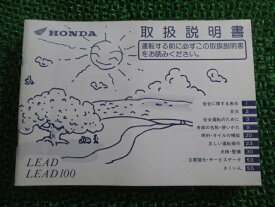 HONDA
取扱説明書
運転する前に必ずこの取扱説明書
をお読みください。
安全に関する表示 1
目次 2
安全運転のために 3
各部の名称・使いかた
燃料・オイルの補給
正しい運転操作
点検・整備
主要諸元・サービスデータ
さくいん
LEAD
LEAD100